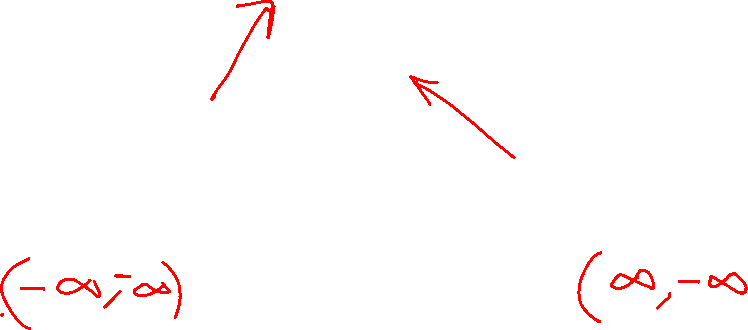 (-∞,-∞) (∞,-∞